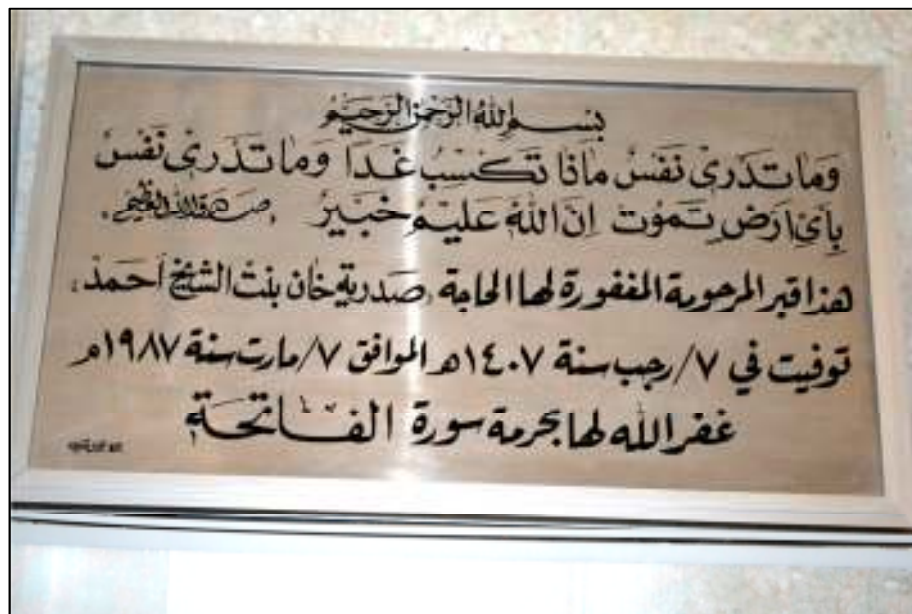 بسم الله الرحمن الرحيم
وما تدري نفس ماذا تكسب غدا وما تدري نفس
بأي ارض تموت ان الله عليم خبير صدق الله العظيم
هذا قبر المرحومة المغفورة لها الحاجة (صدرية خان بنت الشيخ احمد)
توفيت في ٧/رجب سنة ١٤٠٧هـ الموافق ٧/مارت سنة ١٩٨٧م
غفر الله لها بحرمة سورة الفاتحة